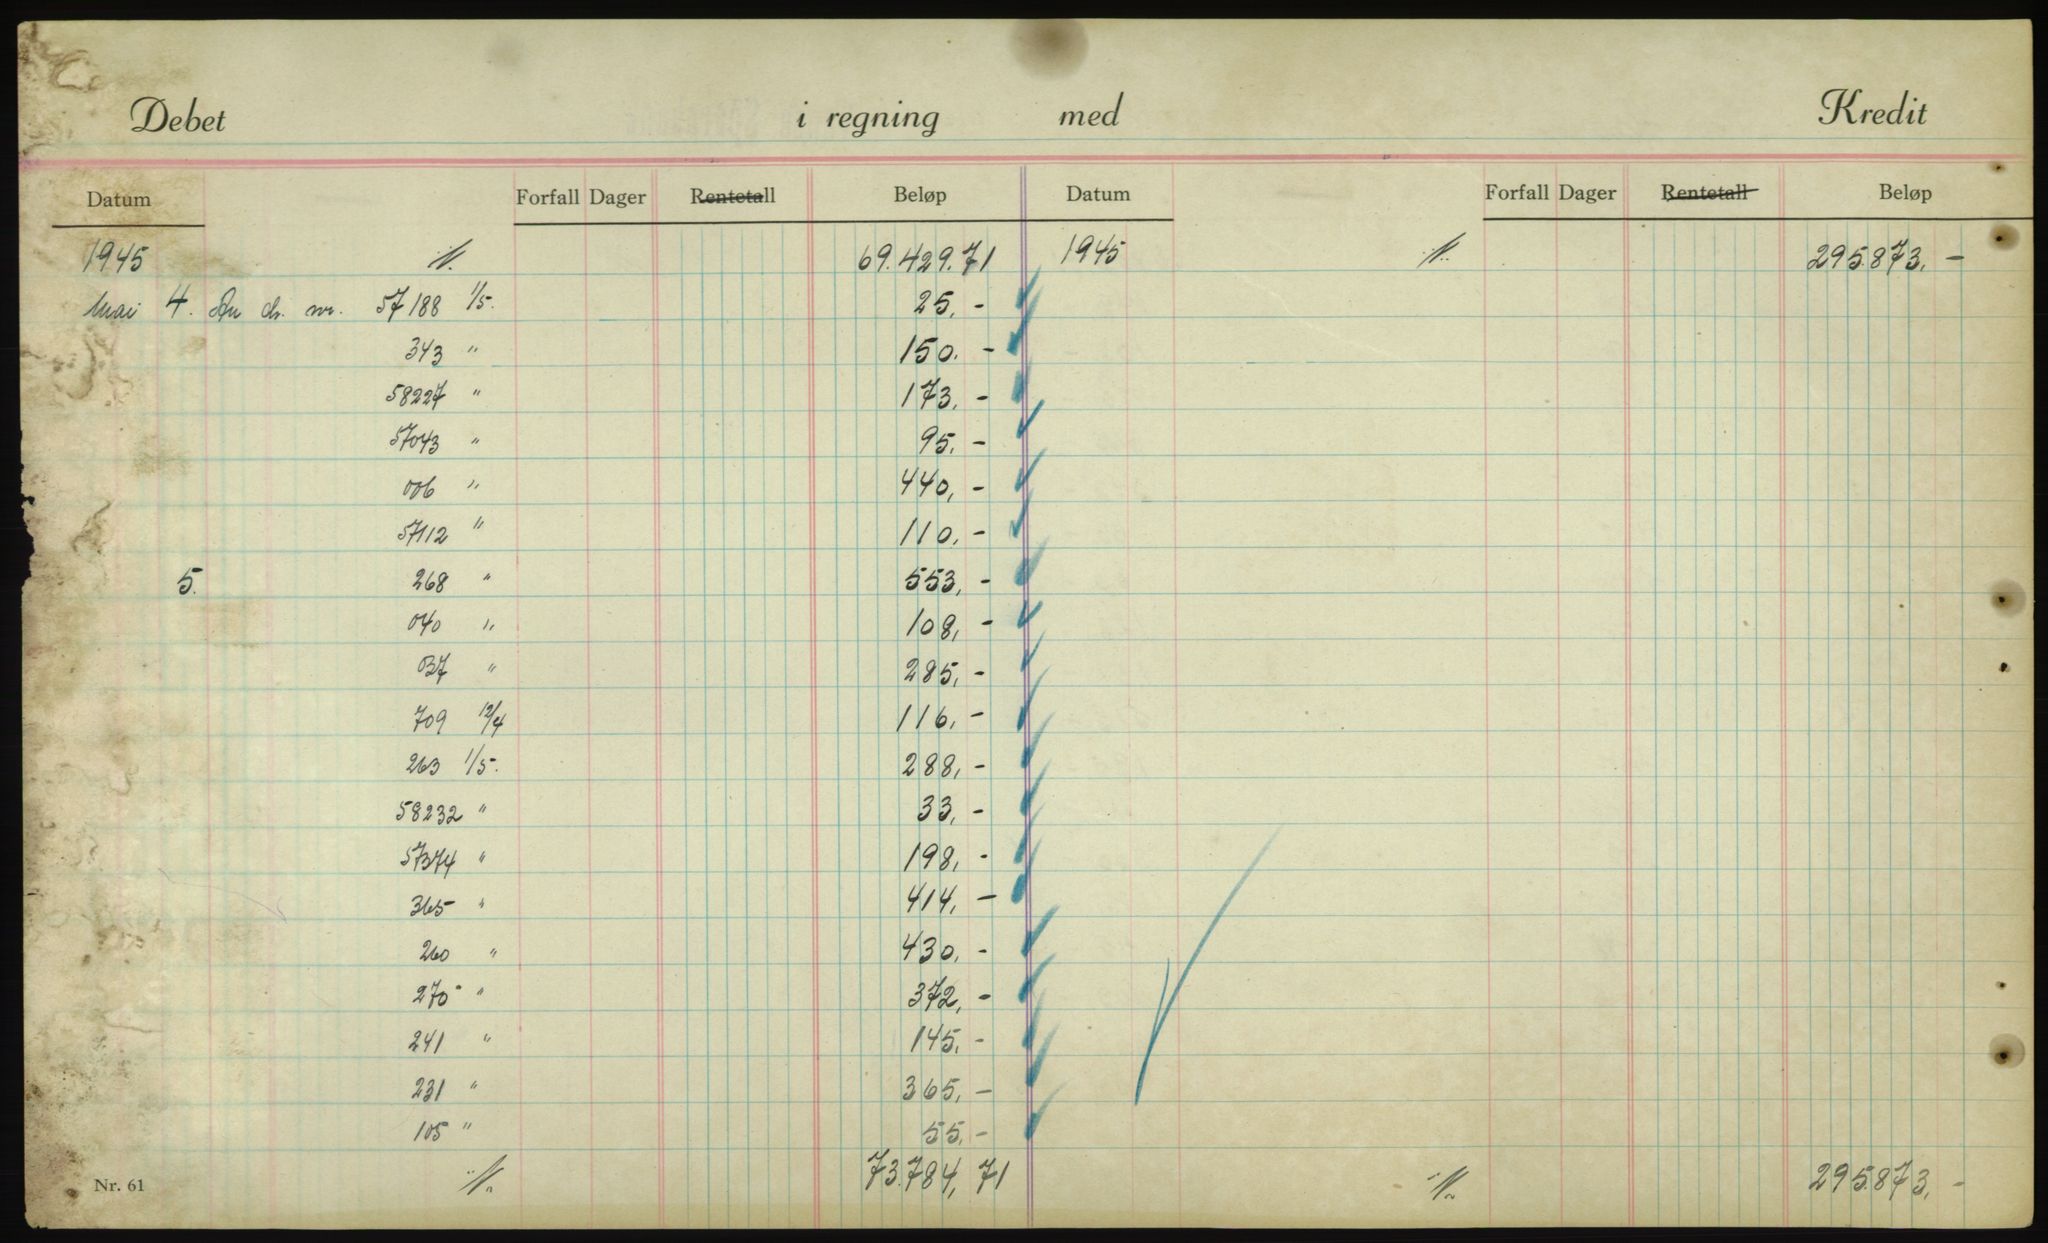 Debet i regning med Kredit
Datum Forfall Dager Rentetall Beløp Datum Forfall Dager Rentetall Beløp
1945 69.429.71 1945 295.873,-
Mai 4. An ch. nr. 57188 1/5. 25,-
343 " 150.-
58227 " 173,-
57043 " 95,-
006 " 440,-
57112 " 110,-
5. 268 " 553,-
040 " 108,-
037 " 285,-
709 12/4 116,-
263 1/5. 288,-
58232 " 33,-
57374 " 198,-
365 " 414,-
260 " 430,-
270 " 372,-
241 " 145,-
231 " 365,-
105 " 55,-
Nr. 61 73.784,71 295.873,-